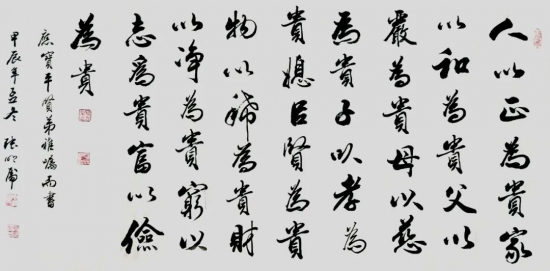 人以正為貴家
以和為貴父以
嚴為貴母以慈
為貴子以孝為
貴媳以賢為貴
物以稀為貴財
以净為貴窮以
志為貴富以儉
為貴
應寶平賢弟雅囑而書
甲辰年孟冬